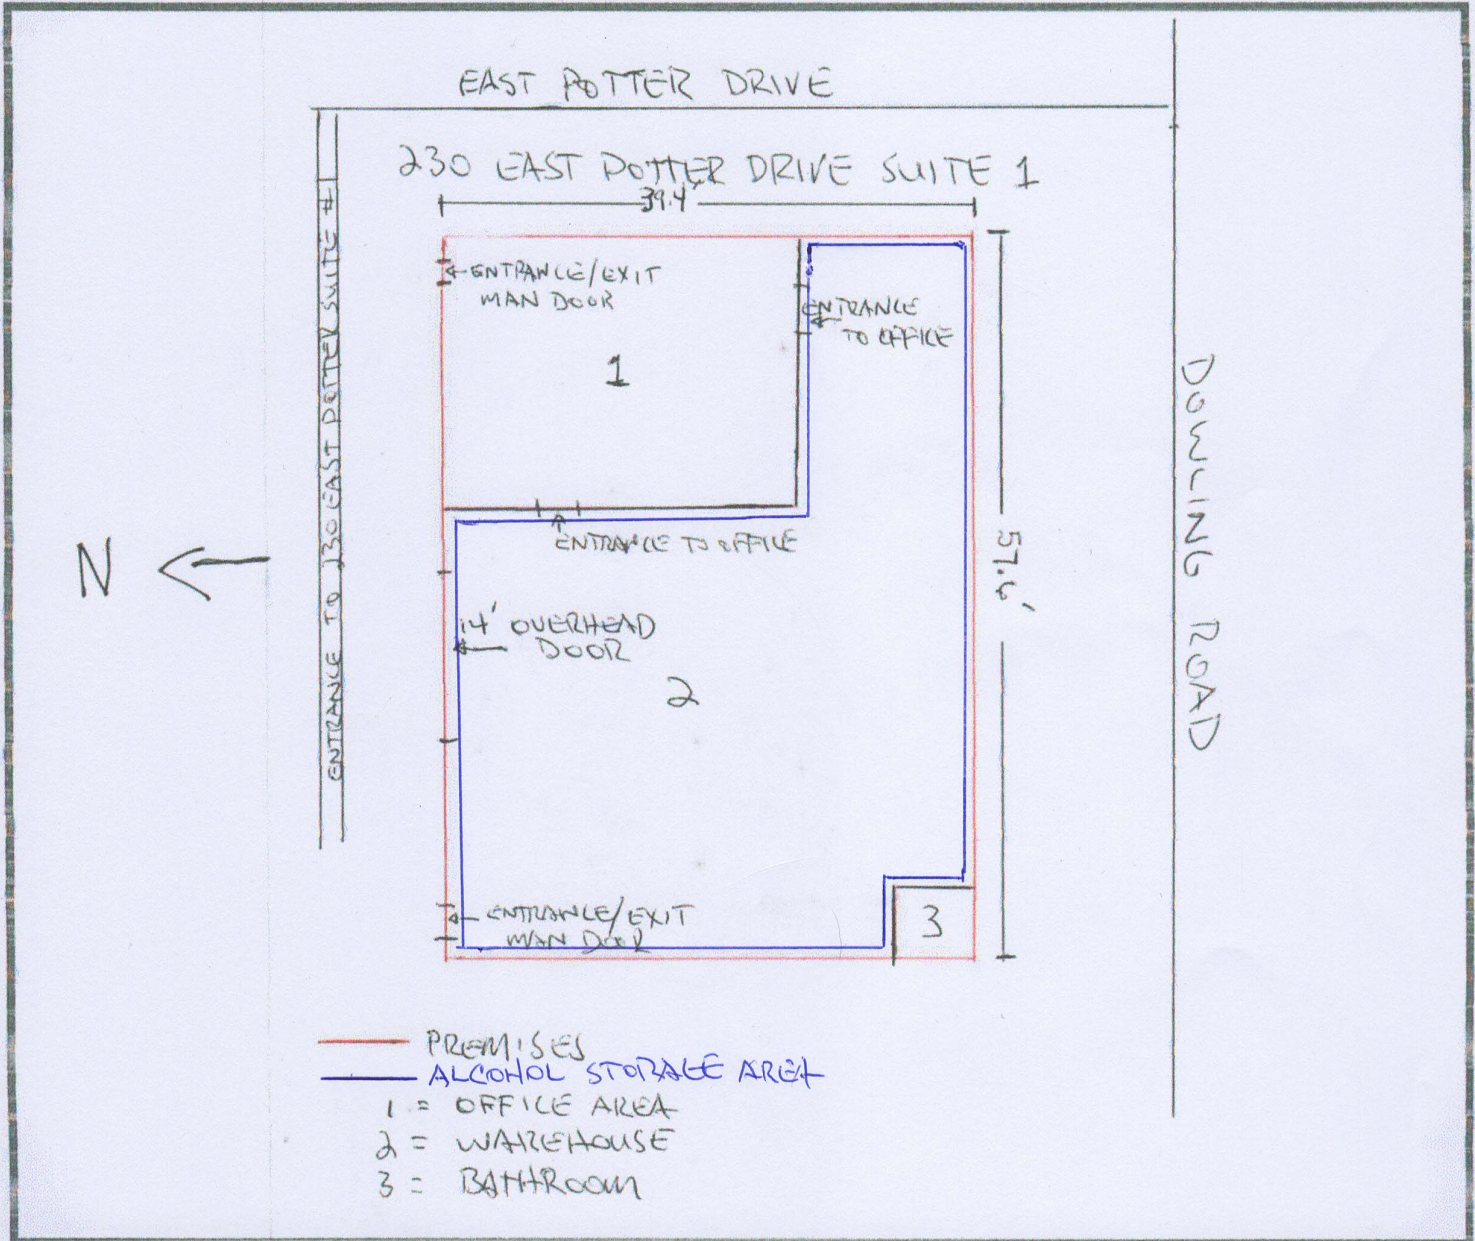 EAST POTTER DRIVE
230 EAST POTTER DRIVE SUITE 1
39.4'
ENTRANCE TO 230 EAST POTTER SUITE #1
←ENTRANCE/EXIT
MAN DOOR
1
ENTRANCE
← TO OFFICE
ENTRANCE TO OFFICE
N ←
14' OVERHEAD
DOOR
2
57.6'
DOWLING ROAD
← ENTRANCE/EXIT
MAN DOOR
3
PREMISES
ALCOHOL STORAGE AREA
1 = OFFICE AREA
2 = WAREHOUSE
3 = BATHROOM